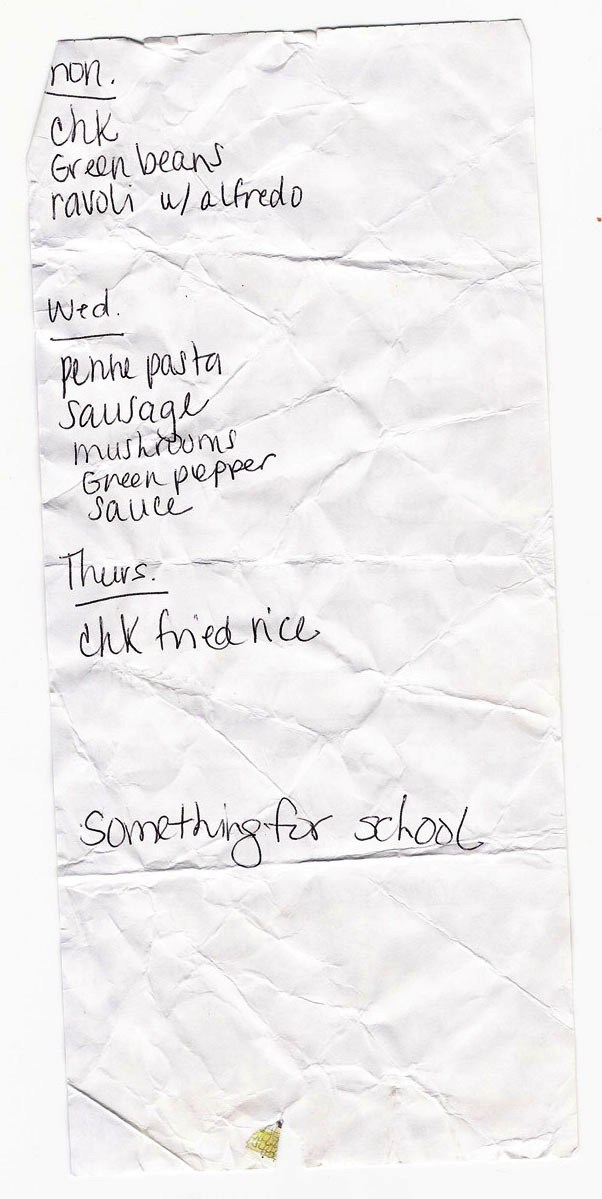 mon.
chk
Green beans
ravoli w/ alfredo
Wed.
penne pasta
sausage
mushrooms
Green piepper
sauce
Thurs.
chk fried rice
something for school